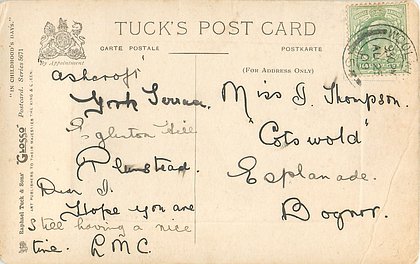 TUCK'S POST CARD
By Appointment
CARTE POSTALE
POSTKARTE
(FOR ADDRESS ONLY)
"IN CHILDHOOD'S DAYS."
Raphael Tuck & Sons' "GLOSSO" Postcard. Series 8671
ART PUBLISHERS TO THEIR MAJESTIES THE KING & QUEEN.
Ashcroft
York Terrace
Eglinton Hill
Plumstead.
Dear J.
Hope you are
still having a nice
time. L.M.C.
Miss J. Thompson.
"Cotswold"
Esplanade.
Bognor.